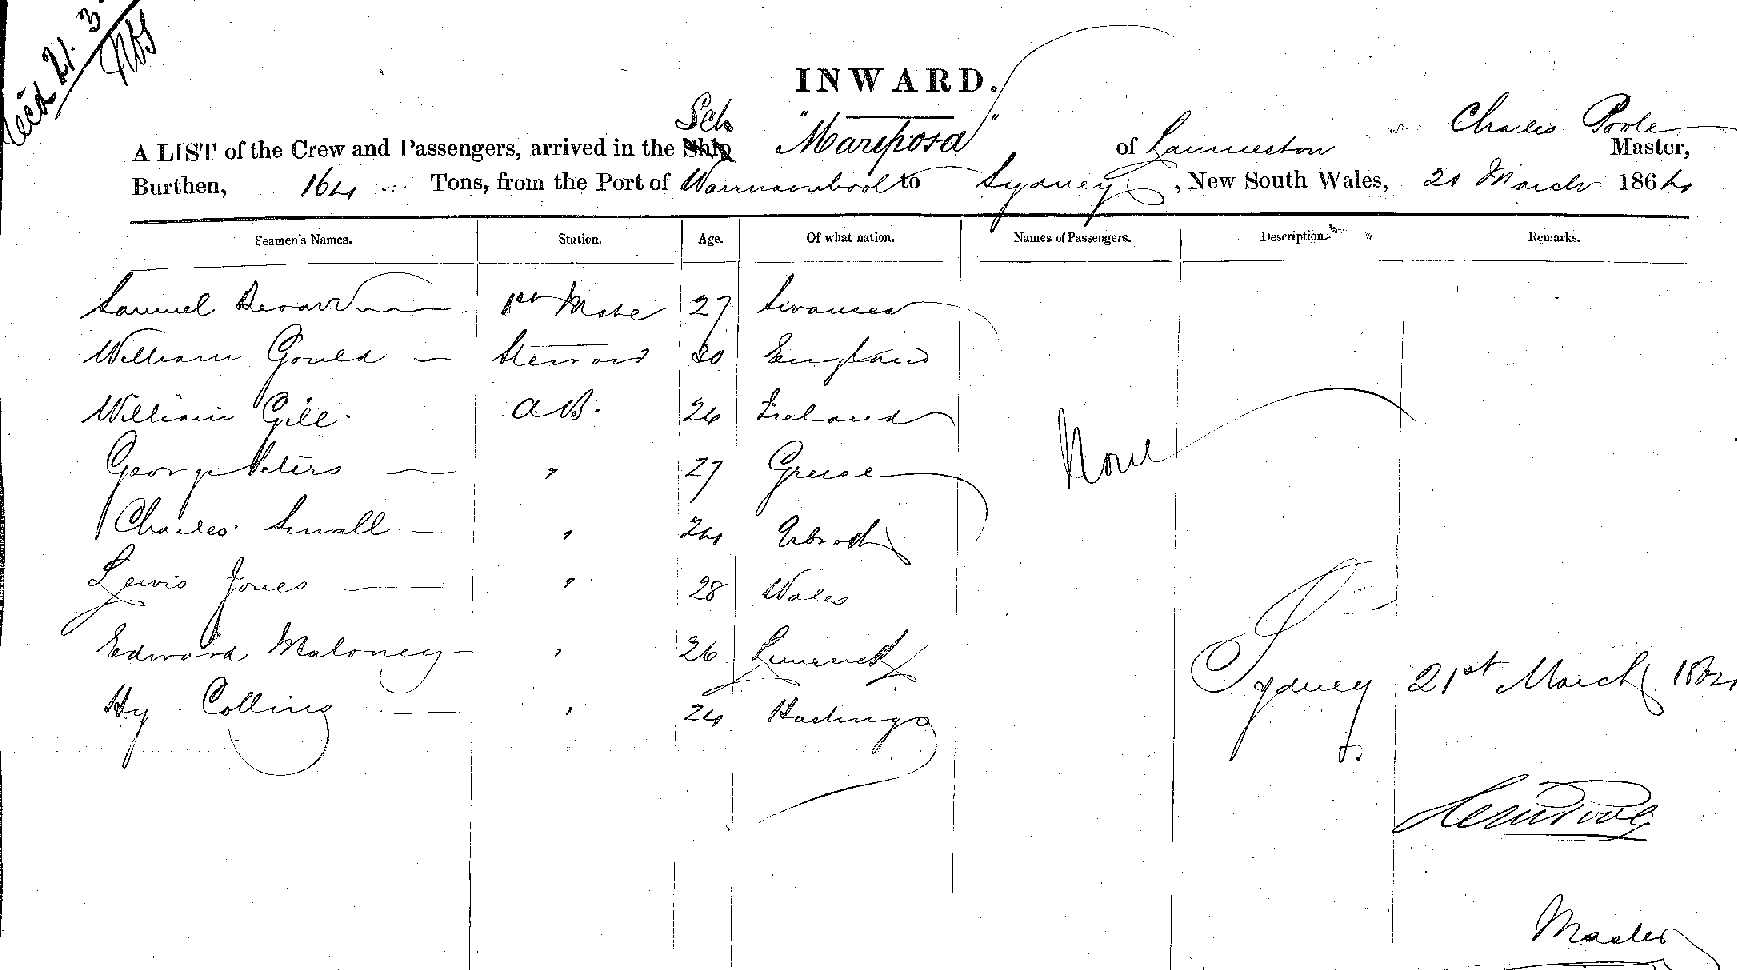 21.3
INWARD.
Sch
A LIST of the Crew and Passengers, arrived in the Ship "Mariposa" of Launceston Charles Poole Master,
Burthen, 164 Tons, from the Port of Warrnambool to Sydney, New South Wales, 21 March 1864
Seamen's Names. Station. Age. Of what nation. Names of Passengers. Description. Remarks.
Samuel 1st Mate 27 Swansea
William Gould — Steward 20 England
William Gill. A.B. 26 Ireland
George Peters — " 27 Greese
None
Charles Small — " 24
Lewis Jones — — " 28 Wales
Edward Maloney — " 26 Limerick
Sydney 21st March 1864
Hy Collins — — " 24 Hastings
Poole
Master